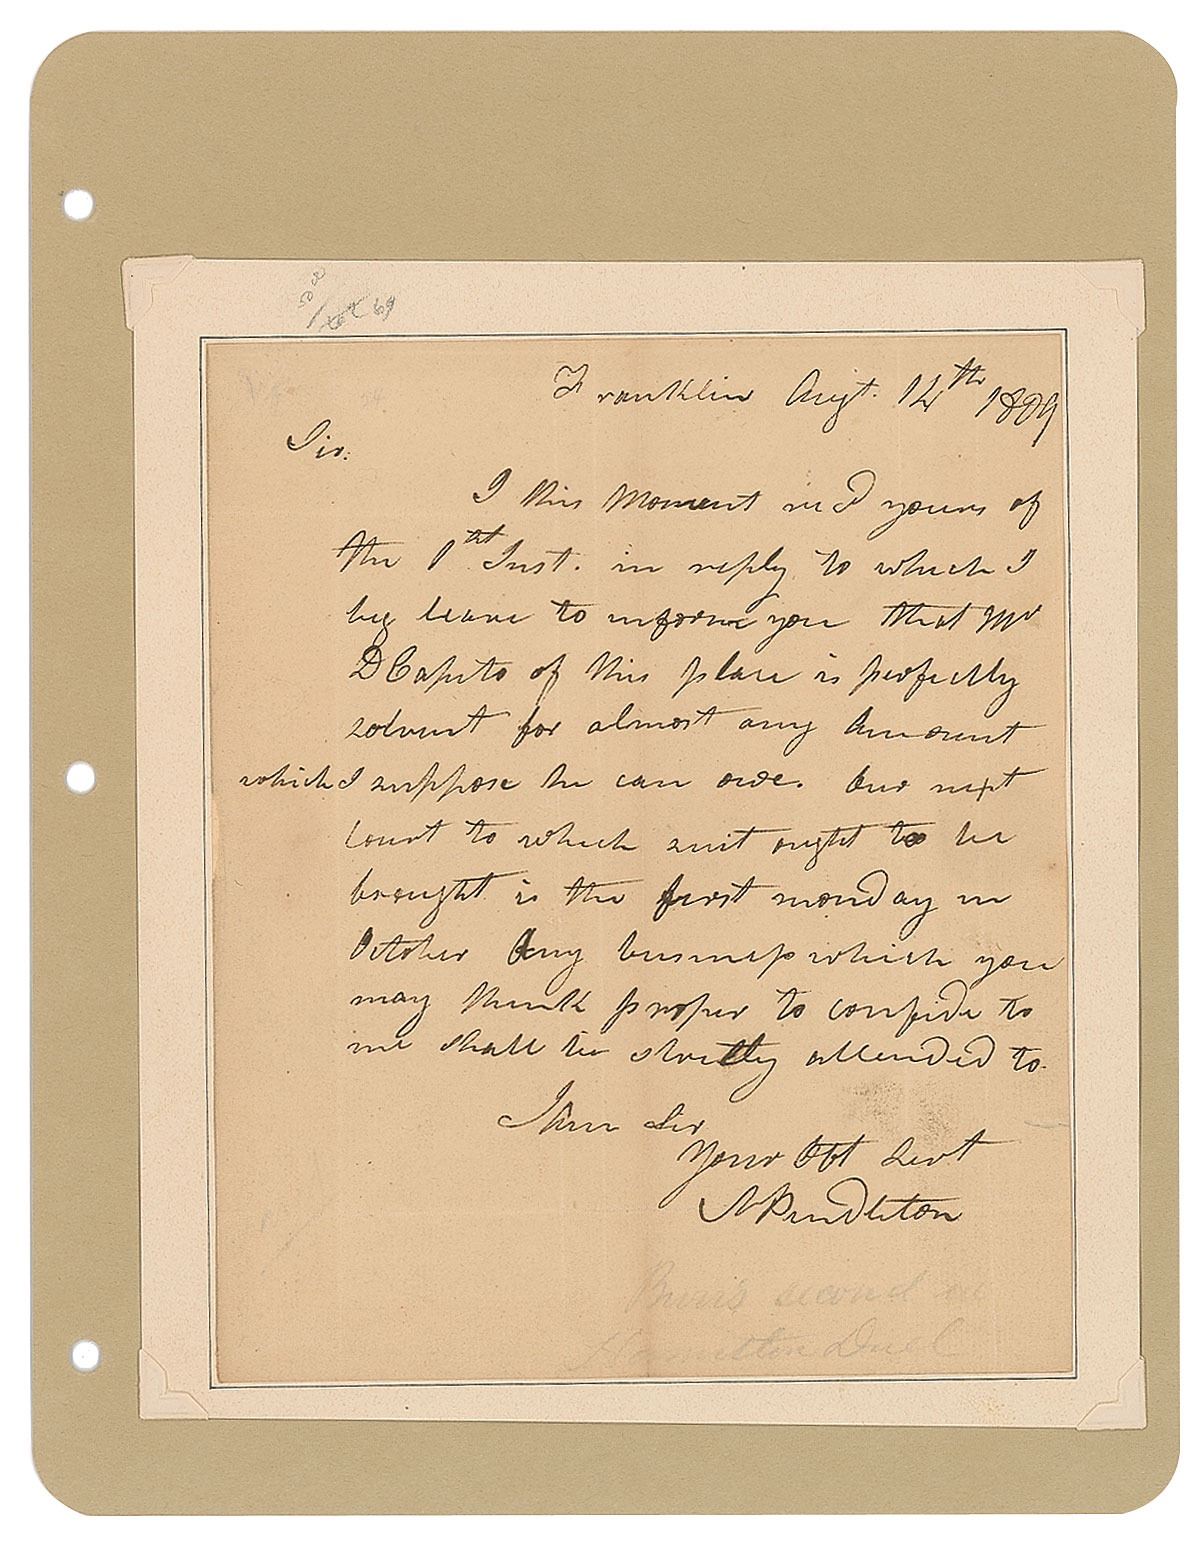 Franklin Augt. 14th 1809
Sir.
I this Moment recd yours of
the 1st Inst. in reply to which I
beg leave to inform you that Mr
D Capito of this place is perfectly
solvent for almost any Amount
which I suppose he can owe. Our next
Court to which suit ought to be
brought is the first monday in
October Any business which you
may think proper to confide to
me shall be strictly attended to.
I am Sir
Your Obt Servt
N Pendleton
Burr's second in
Hamilton Duel